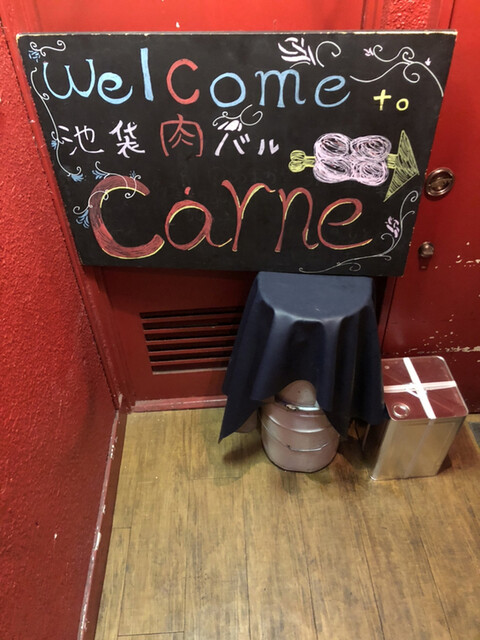 Welcome to
池袋肉バル
Carne